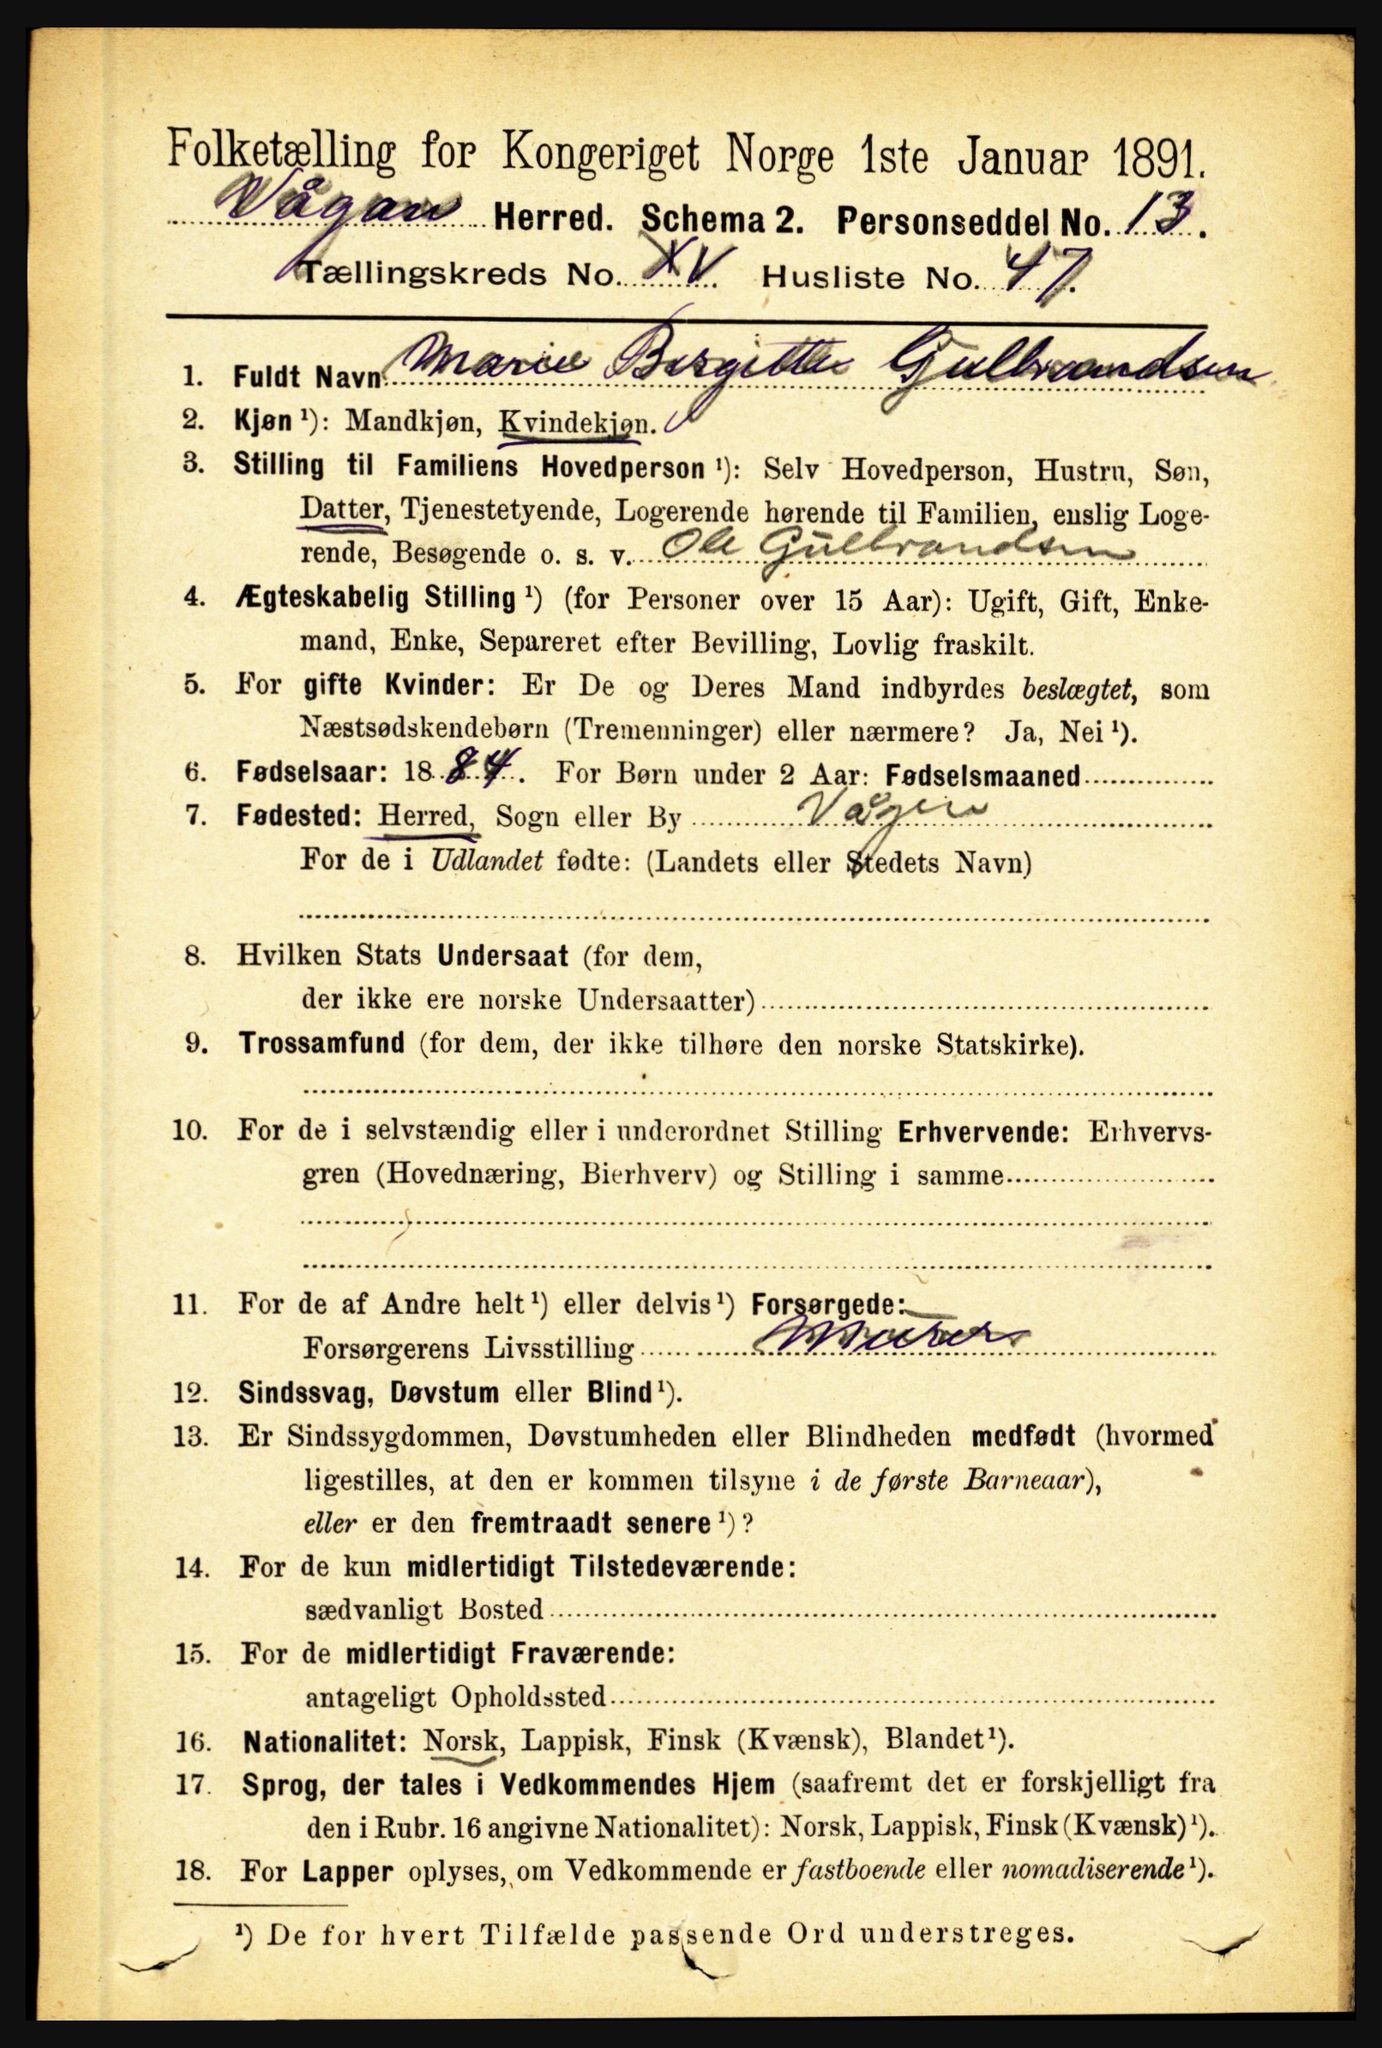 Folketælling for Kongeriget Norge 1ste Januar 1891.
Vågan Herred. Schema 2. Personseddel No. 13.
Tællingskreds No. XV Husliste No. 47.
1. Fuldt Navn Marie Birgitte Gulbrandsen
2. Kjøn ¹): Mandkjøn, Kvindekjøn.
3. Stilling til Familiens Hovedperson ¹): Selv Hovedperson, Hustru, Søn,
Datter, Tjenestetyende, Logerende hørende til Familien, enslig Loge-
rende, Besøgende o. s. v. Ole Gulbrandsen
4. Ægteskabelig Stilling ¹) (for Personer over 15 Aar): Ugift, Gift, Enke-
mand, Enke, Separeret efter Bevilling, Lovlig fraskilt.
5. For gifte Kvinder: Er De og Deres Mand indbyrdes beslægtet, som
Næstsødskendebørn (Tremenninger) eller nærmere? Ja, Nei ¹).
6. Fødselsaar: 1884. For Børn under 2 Aar: Fødselsmaaned
7. Fødested: Herred, Sogn eller By Vågen
For de i Udlandet fødte: (Landets eller Stedets Navn)
8. Hvilken Stats Undersaat (for dem,
der ikke ere norske Undersaatter)
9. Trossamfund (for dem, der ikke tilhøre den norske Statskirke).
10. For de i selvstændig eller i underordnet Stilling Erhvervende: Erhvervs-
gren (Hovednæring, Bierhverv) og Stilling i samme
11. For de af Andre helt ¹) eller delvis ¹) Forsørgede:
Forsørgerens Livsstilling Murer
12. Sindssvag, Døvstum eller Blind ¹).
13. Er Sindssygdommen, Døvstumheden eller Blindheden medfødt (hvormed
ligestilles, at den er kommen tilsyne i de første Barneaar),
eller er den fremtraadt senere ¹)?
14. For de kun midlertidigt Tilstedeværende:
sædvanligt Bosted
15. For de midlertidigt Fraværende:
antageligt Opholdssted
16. Nationalitet: Norsk, Lappisk, Finsk (Kvænsk), Blandet ¹).
17. Sprog, der tales i Vedkommendes Hjem (saafremt det er forskjelligt fra
den i Rubr. 16 angivne Nationalitet): Norsk, Lappisk, Finsk (Kvænsk) ¹).
18. For Lapper oplyses, om Vedkommende er fastboende eller nomadiserende ¹).
¹) De for hvert Tilfælde passende Ord understreges.